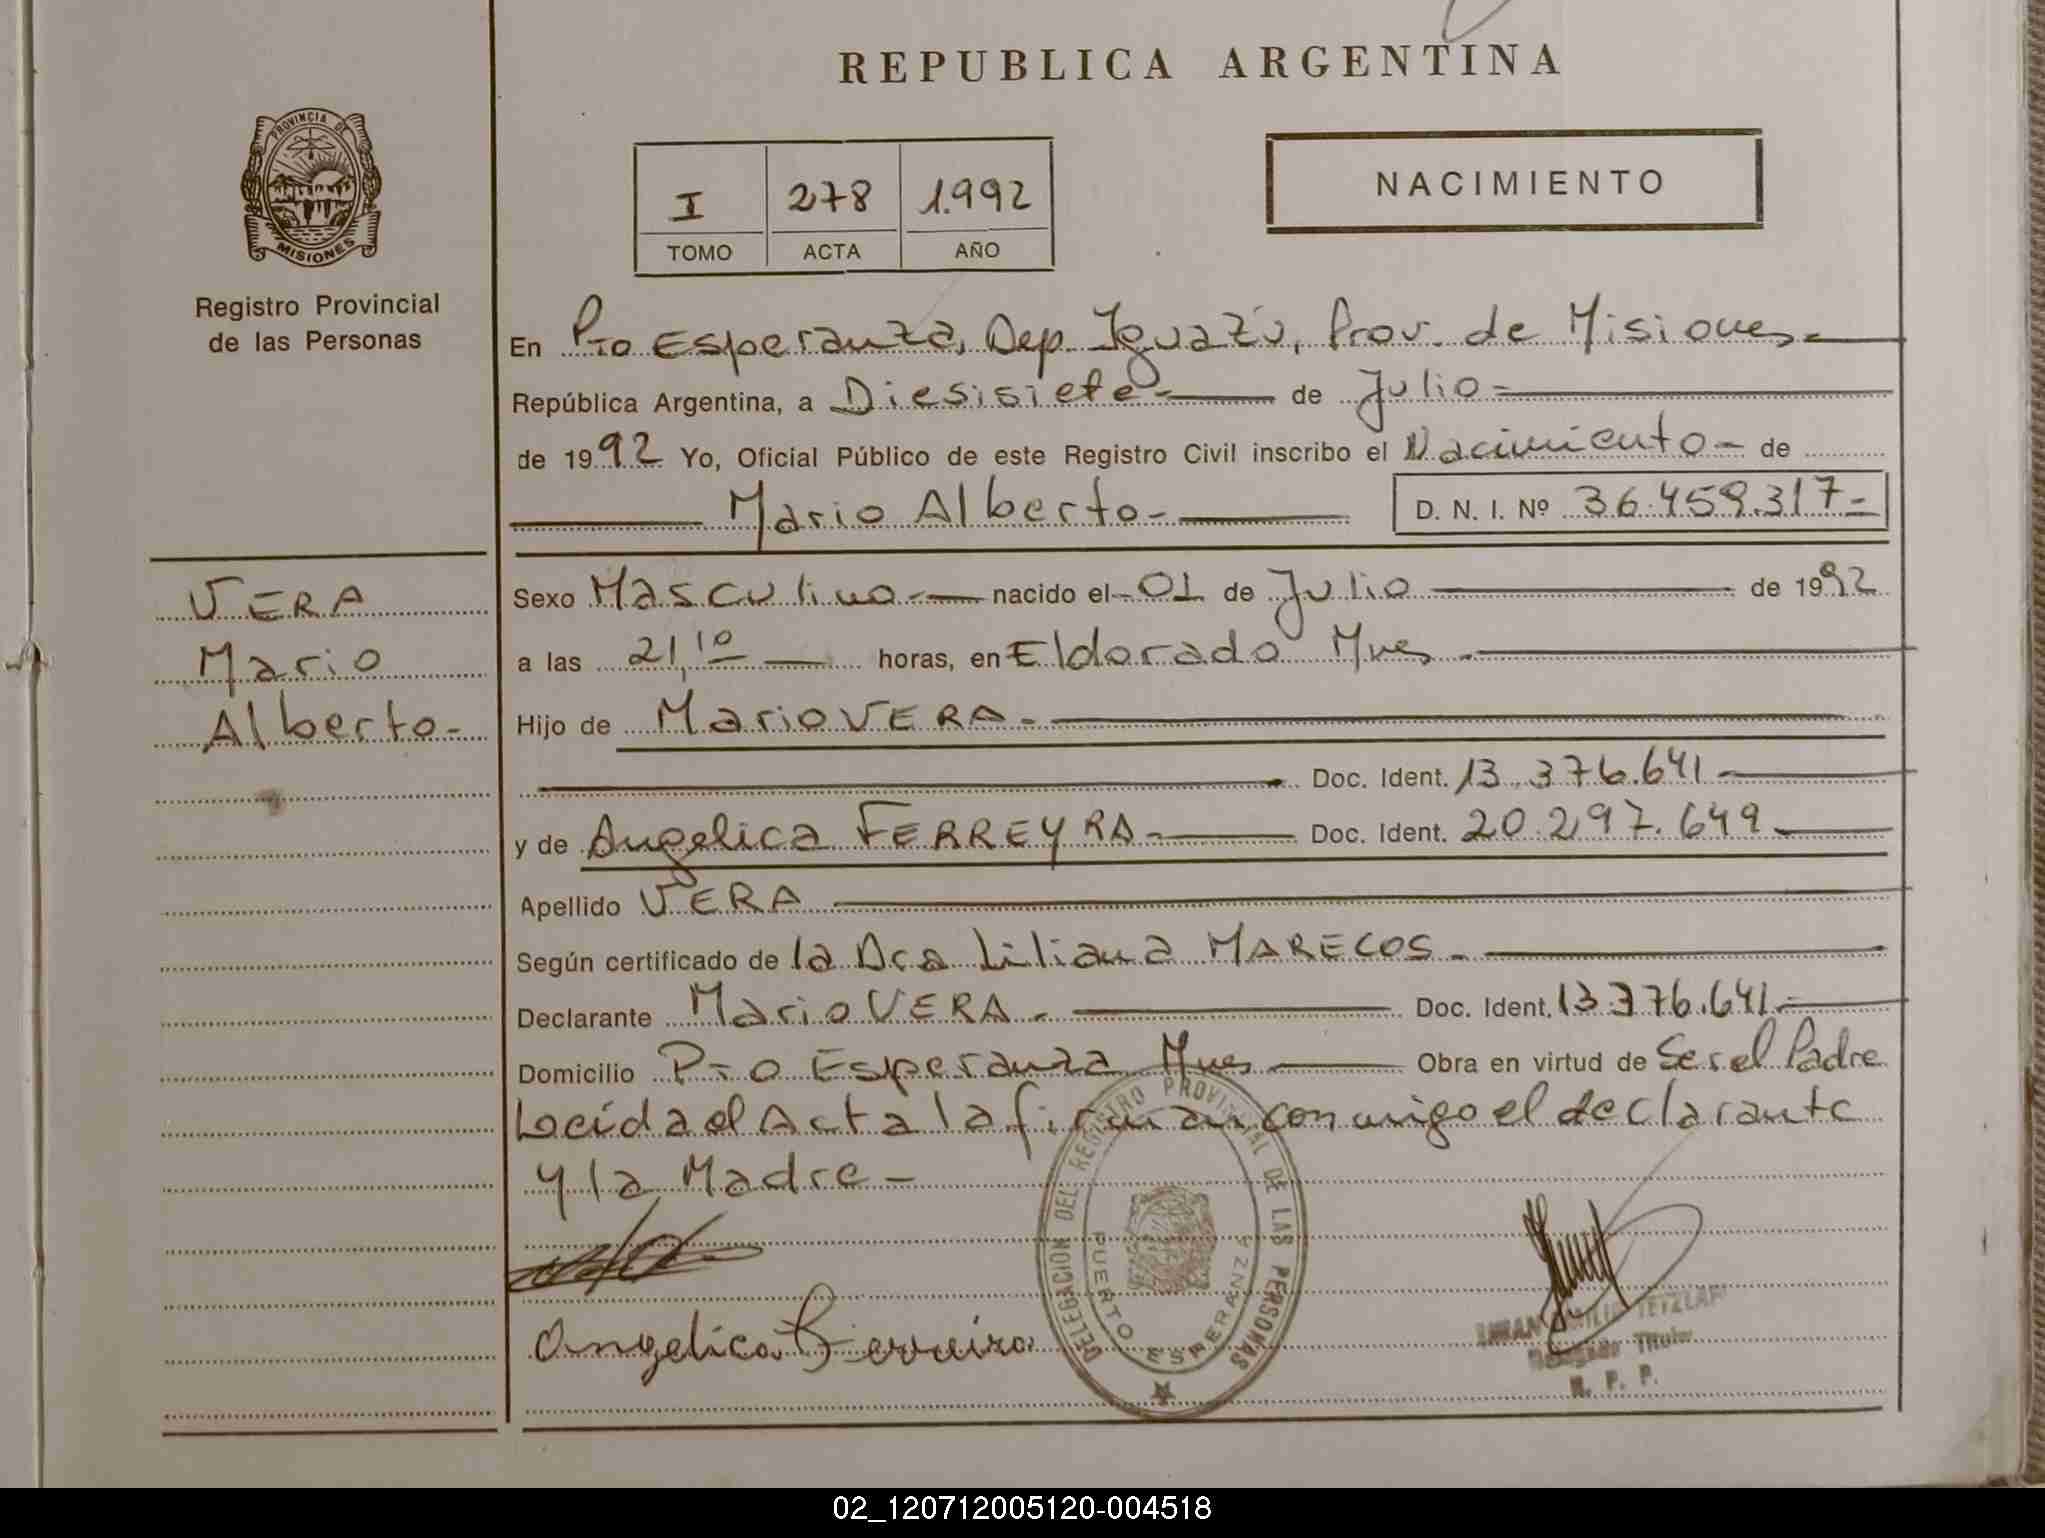 REPUBLICA ARGENTINA
PROVINCIA DE
MISIONES
Registro Provincial
de las Personas
I 278 1.992
TOMO ACTA AÑO
NACIMIENTO
En Pto Esperanza, Dep. Iguazú, Prov. de Misiones.-
República Argentina, a Diesisiete- de Julio-
de 1992 Yo, Oficial Público de este Registro Civil inscribo el Nacimiento- de
Mario Alberto- D. N. I. Nº 36.459.317-
VERA
Mario
Alberto-
Sexo Masculino.- nacido el-01 de Julio de 1992
a las 21,10 horas, en Eldorado Mnes.-
Hijo de Mario VERA.-
Doc. Ident. 13.376.641-
y de Angelica FERREYRA- Doc. Ident. 20.297.649-
Apellido VERA
Según certificado de la Dra Liliana MARECOS.-
Declarante Mario VERA.- Doc. Ident. 13.376.641.-
Domicilio Pto Esperanza Mnes Obra en virtud de Ser el Padre
Leída el Acta la firman conmigo el declarante
y la Madre-
Angelica Ferreira
DELEGACION DEL REGISTRO PROVINCIAL DE LAS PERSONAS
PUERTO ESPERANZA
TETZLAF
Delegado Titular
R. P. P.
02_120712005120-004518